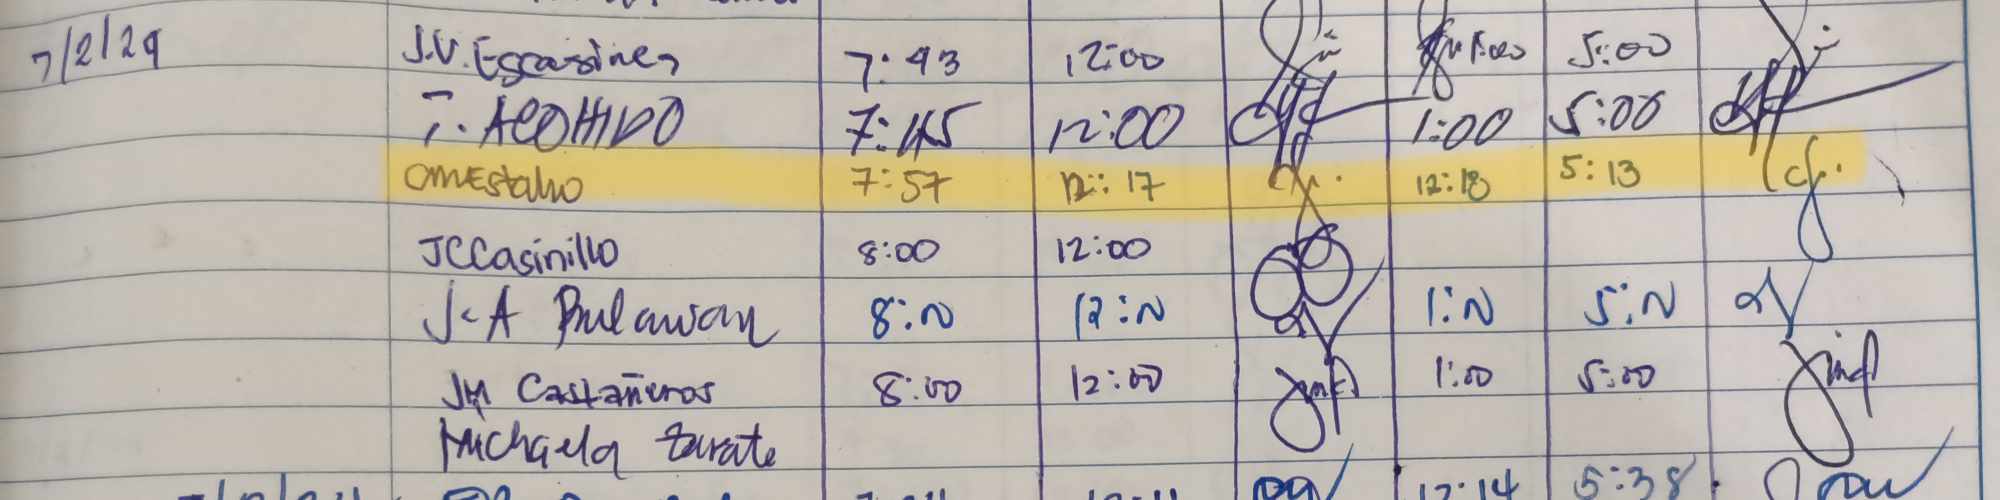 7/2/24 J.V. Escasinas 7:43 12:00 1:00 5:00
T. ACOHIDO 7:45 12:00 1:00 5:00
CMEstaño 7:57 12:17 12:18 5:13
JCCasinillo 8:00 12:00
J.A Bulawan 8:N 12:N 1:N 5:N
JM Castañeros 8:00 12:00 1:00 5:00
Michaela Zarate
12:14 5:38